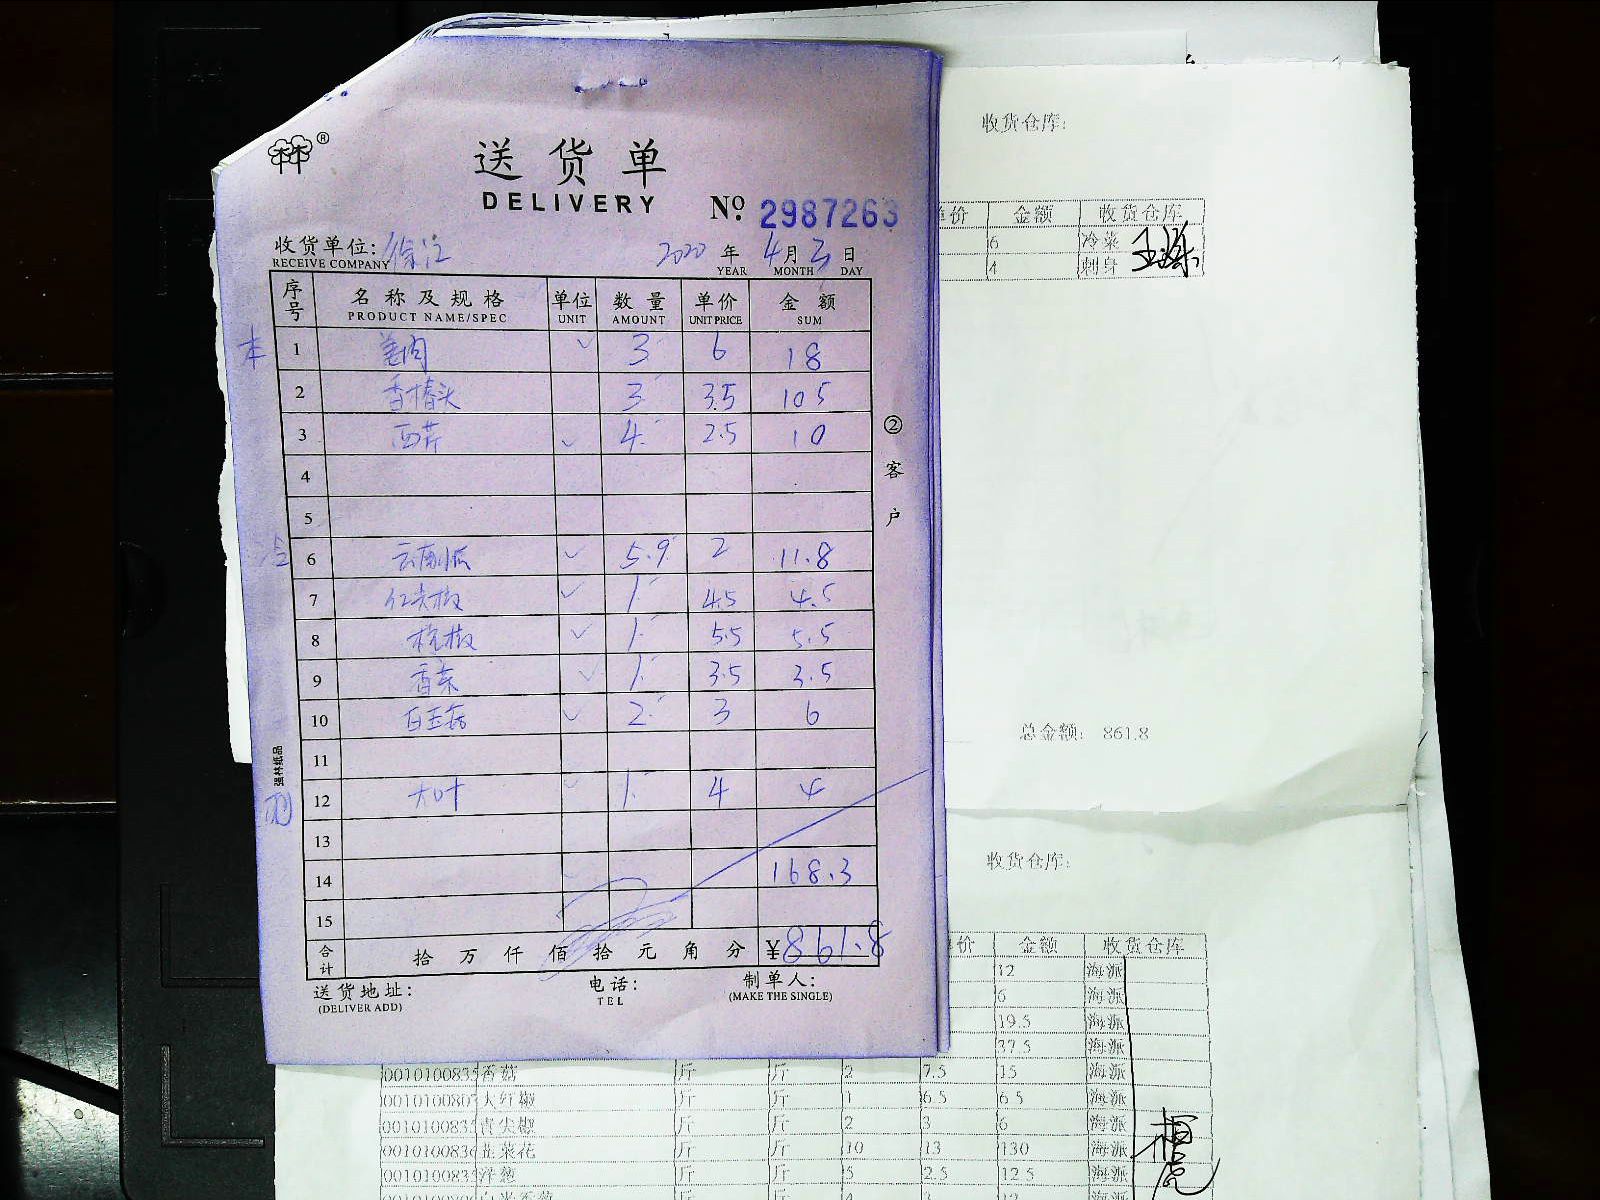 送货单
DELIVERY
№ 2987263
收货单位: 徐汇 2020 年 4 月 3 日
RECEIVE COMPANY YEAR MONTH DAY
序号 名称及规格 单位 数量 单价 金额
PRODUCT NAME/SPEC UNIT AMOUNT UNIT PRICE SUM
本 1 姜肉 3 6 18
2 香椿头 3 35 105
3 西芹 4 2.5 10
4
5
6 云南小瓜 5.9 2 11.8
7 红尖椒 1 4.5 4.5
8 杭椒 1 5.5 5.5
9 香菜 1 3.5 3.5
10 白玉菇 2 3 6
11
12 大叶 1 4 4
13
14 168.3
15
合计 拾 万 仟 佰 拾 元 角 分 ¥861.8
送货地址: 电话: 制单人:
(DELIVER ADD) TEL (MAKE THE SINGLE)
②客户
强林纸品
收货仓库:
单价 金额 收货仓库
6 冷菜
4 刺身
总金额: 861.8
收货仓库:
单价 金额 收货仓库
12 海派
6 海派
19.5 海派
37.5 海派
香菇 斤 斤 2 7.5 15 海派
大红椒 斤 斤 1 6.5 6.5 海派
青尖椒 斤 斤 2 3 6 海派
韭菜花 斤 斤 10 13 130 海派
洋葱 斤 斤 5 2.5 12.5 海派